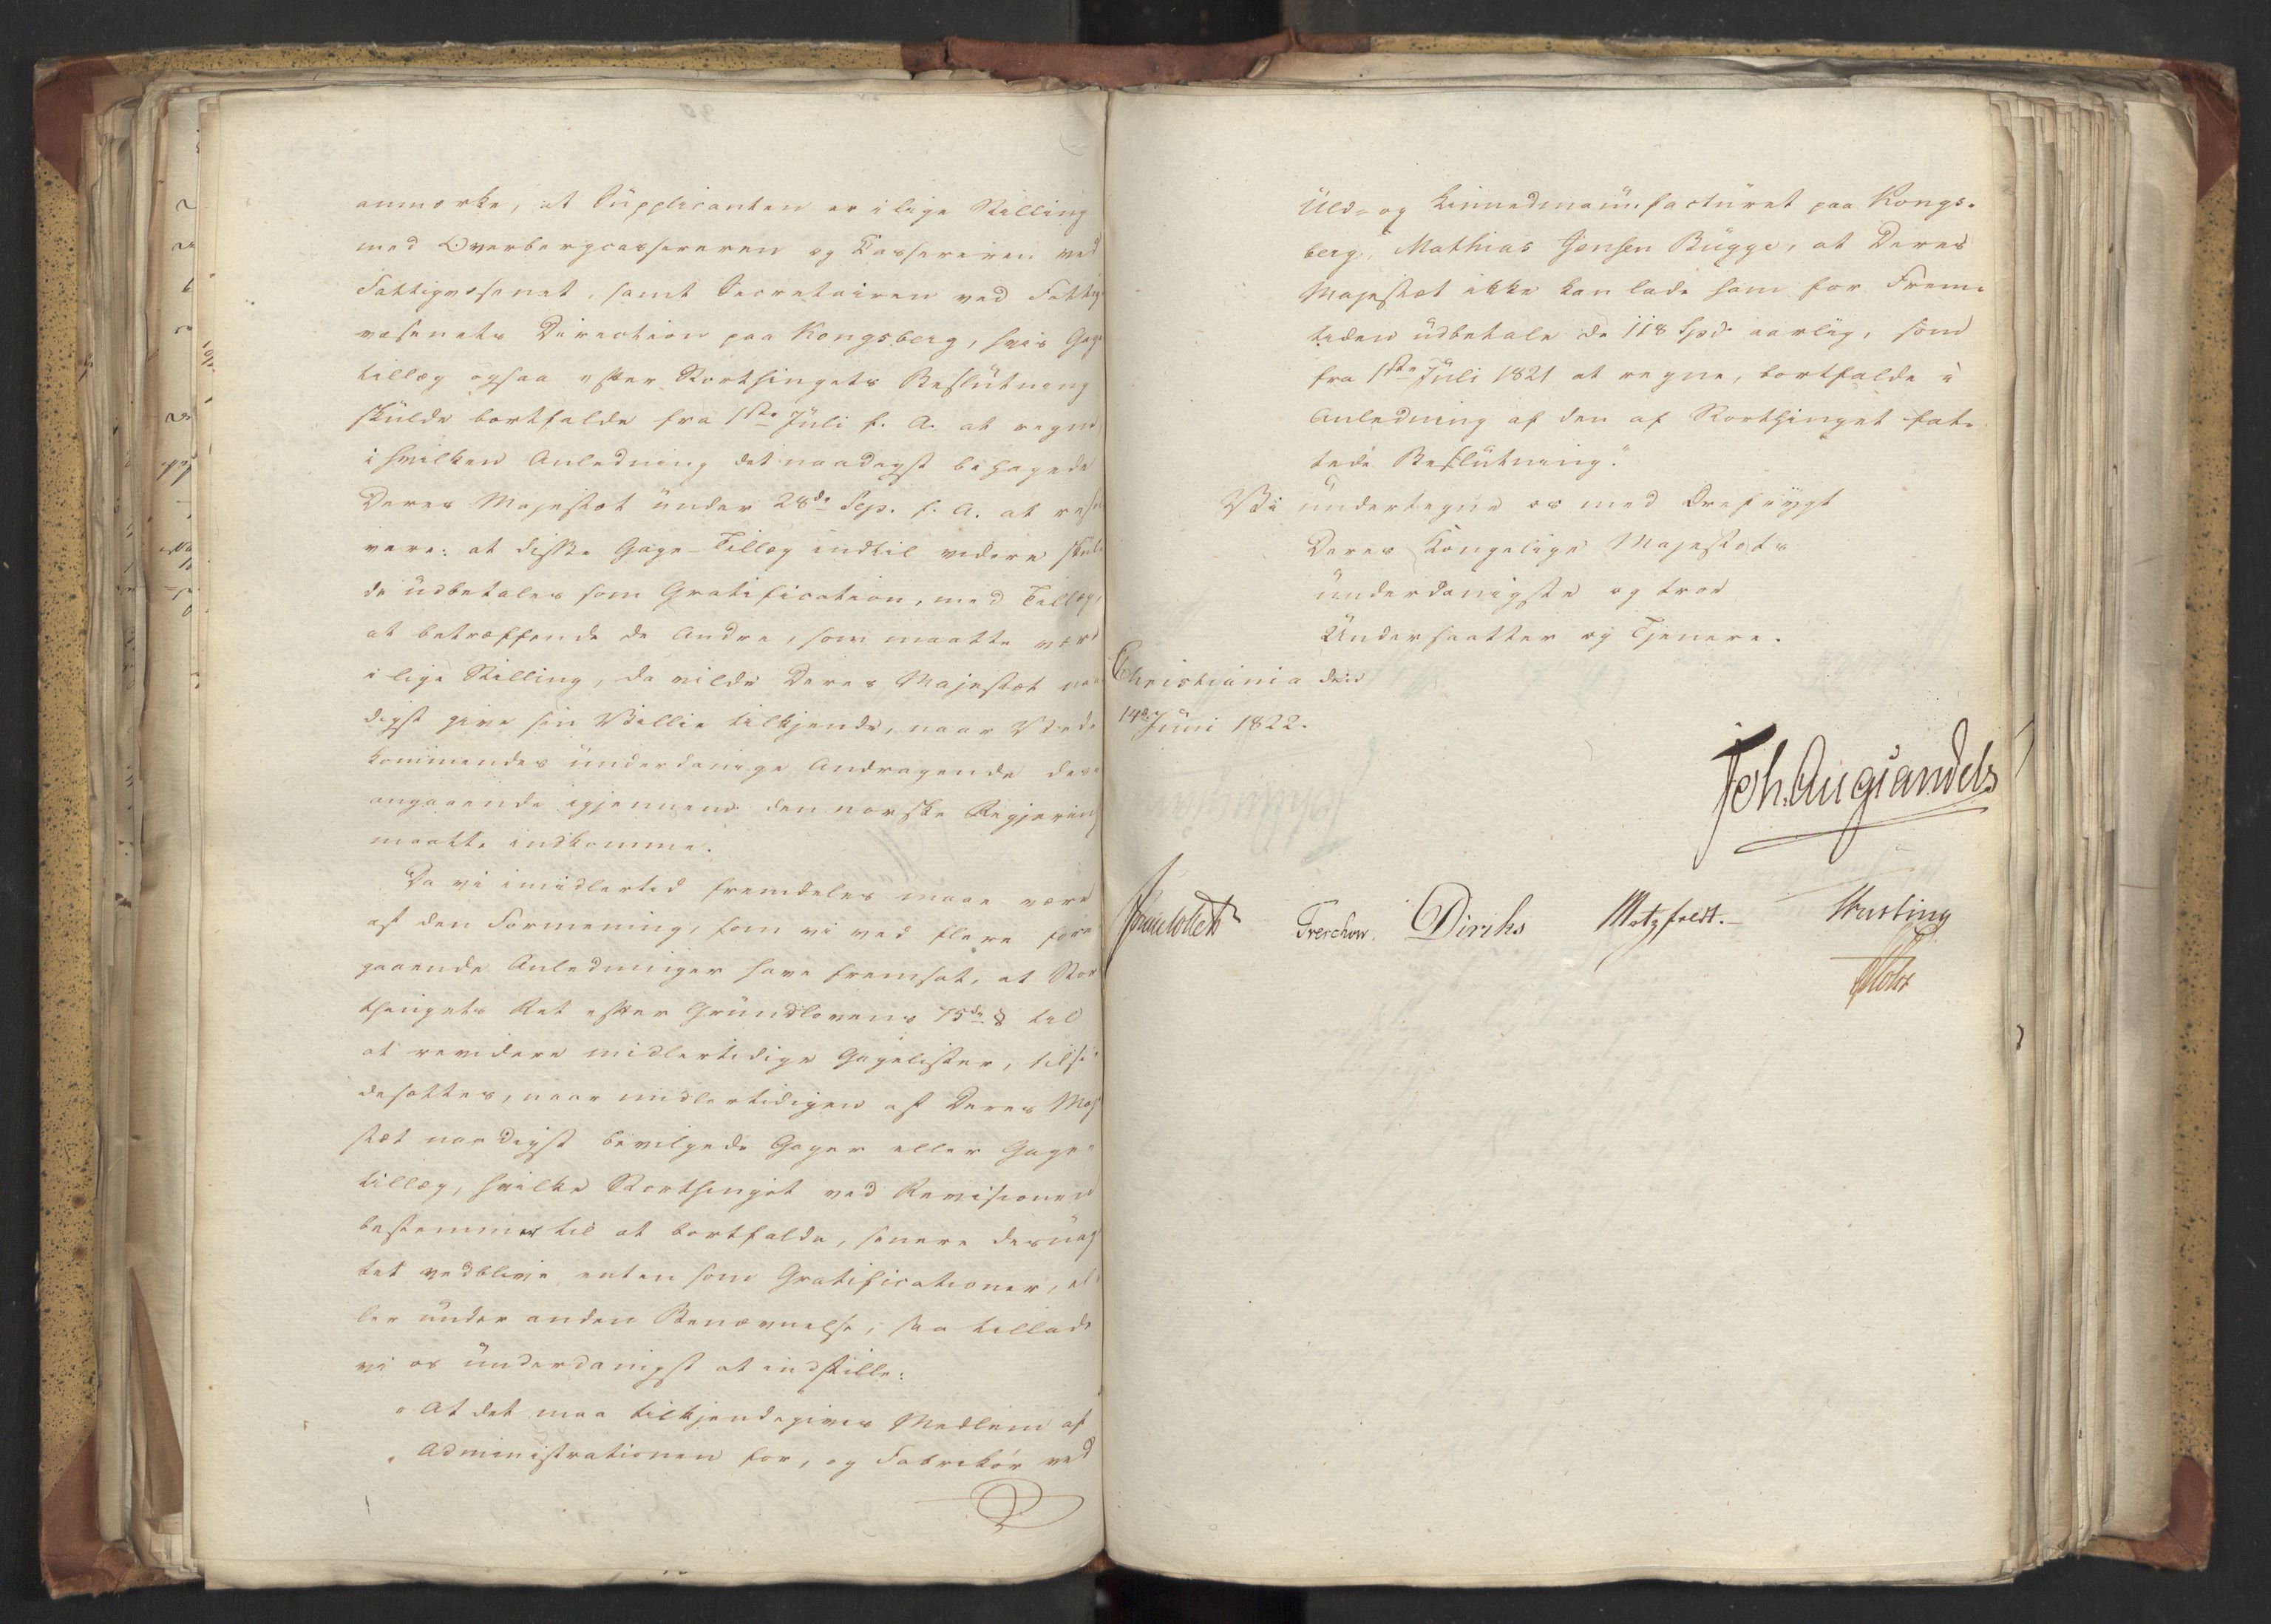 anmærke, at Supplicanten er i lige Stilling
med Overbergcassereren og Cassereren ved
Fattigvæsenet, samt Secretairen ved Fattig
væsenets Direction paa Kongsberg, hvis Gage
tillæg ogsaa efter Storthingets Beslutning
skulde bortfalde fra 1ste Juli f. A. at regne,
i hvilken Anledning det naadigst behagede
Deres Majestæt under 28de Sep. f. A. at resol
vere: at disse Gage-Tillæg indtil videre skul
de udbetales som Gratification, med Tillæg,
at betræffende de Andre, som maatte være
i lige Stilling, da vilde Deres Majestæt naa
digst give sin Villie tilkjende, naar Vedk
kommendes underdanige Andragende des
angaaende igjennem den norske Regjering
maatte indkomme.
Da vi imidlertid fremdeles maae være
af den Formening, som vi ved flere fore
gaaende Anledninger have fremsat, at Stor
thingets Ret efter Grundlovens 75de § til
at revidere midlertidige Gagelister, tilsi
desættes, naar midlertidigen af Deres Maj
stæt naadigst bevilgede Gager eller Gage
tillæg, hvilke Storthinget ved Revisionen
bestemmer til at bortfalde, senere desuag
tet vedblive enten som Gratificationer, el
ler under anden Benævnelse, saa tillade
vi os underdanigst at indstille:
"At det maa tilkjendegives Medlem af
"Administrationen for, og Fabrikør ved
Uld- og Linnedmanufacturet paa Kongs-
berg, Mathias Jensen Bugge, at Deres
Majestæt ikke kan lade ham for Frem-
tiden udbetale de 118 Spd. aarlig, som
fra 1ste Juli 1821 at regne, bortfalde i
Anledning af den af Storthinget fat-
tede Beslutning."
Vi undertegne os med Ærefrygt
Deres Kongelige Majestæts
underdanigste og troe
Undersaatter og Tjenere.
Christiania den
14de Juni 1822.
Joh. Aug. Sandels
Jonas Collett Treschow. Diriks Motzfeldt. Krefting